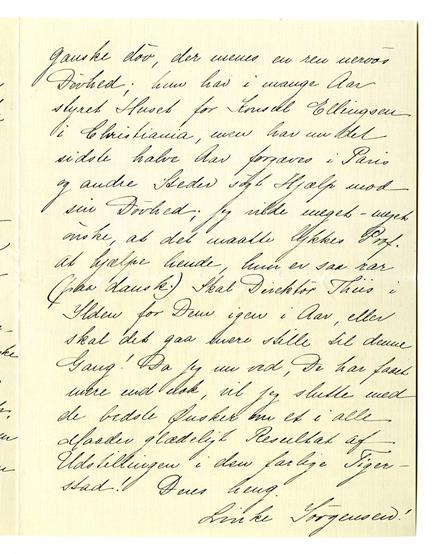 ganske döv, der menes en ren nervös
Dövhed; hun har i mange Aar
styret Huset for Konsul Ellingsen
i Christiania, men har nu det
sidste halve Aar forgæves i Paris
og andre Steder sögt Hjælp mod
sin Dövhed; jeg vilde meget-meget
önske, at det maatte lykkes Prof.
at hjælpe hende, hun er saa rar
(paa dansk.) Skal Direktör Thiis i
Ilden for Dem igen i Aar, eller
skal det gaa mere stille til denne
Gang! Da jeg nu ved, De har faaet
mere end nok, vil jeg slutte med
de bedste Ønsker om et i alle
Maader glædeligt Resultat af
Udstillingen i den farlige Tiger-
stad! Deres heng.
Linke Jörgensen!